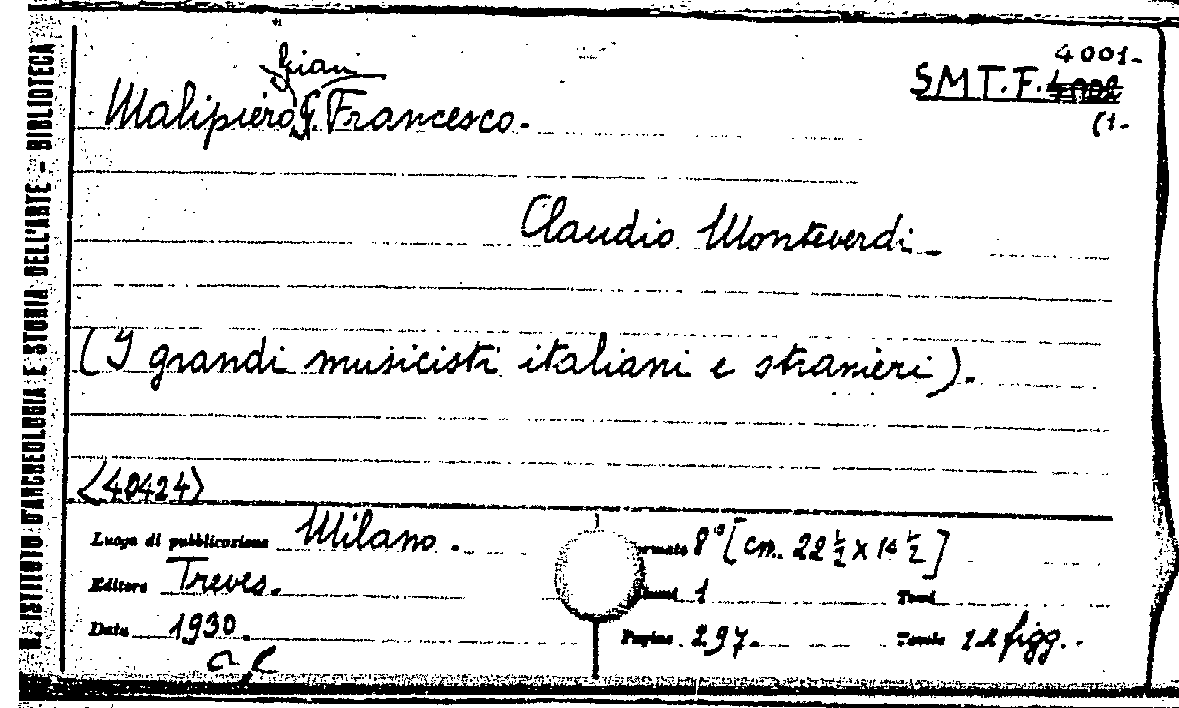 R. ISTITUTO D'ARCHEOLOGIA E STORIA DELL'ARTE - BIBLIOTECA
4001-
S.M.T.F. 4002
(1-
Gian
Malipiero, G. Francesco.
Claudio Monteverdi_
(I grandi musicisti italiani e stranieri).
<40424>
Luogo di pubblicazione Milano.
Editore Treves.
Data 1930.
Formato 8° [cm. 22 ½ x 14 ½]
Volumi 1 Tomi
Pagine 297. Tavole figg.